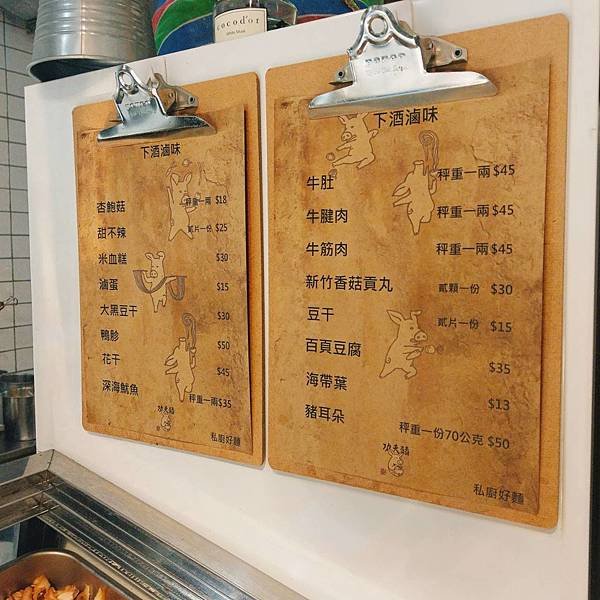 cocod'or
下酒滷味
杏鮑菇 秤重一兩 $18
甜不辣 貳片一份 $25
米血糕 $30
滷蛋 $15
大黑豆干 $30
鴨胗 $50
花干 $45
深海魷魚 秤重一兩$35
功夫豬
私廚好麵
下酒滷味
牛肚 秤重一兩 $45
牛腱肉 秤重一兩 $45
牛筋肉 秤重一兩 $45
新竹香菇貢丸 貳顆一份 $30
豆干 貳片一份 $15
百頁豆腐 $35
海帶葉 $13
豬耳朵 秤重一份70公克 $50
功夫豬
私廚好麵